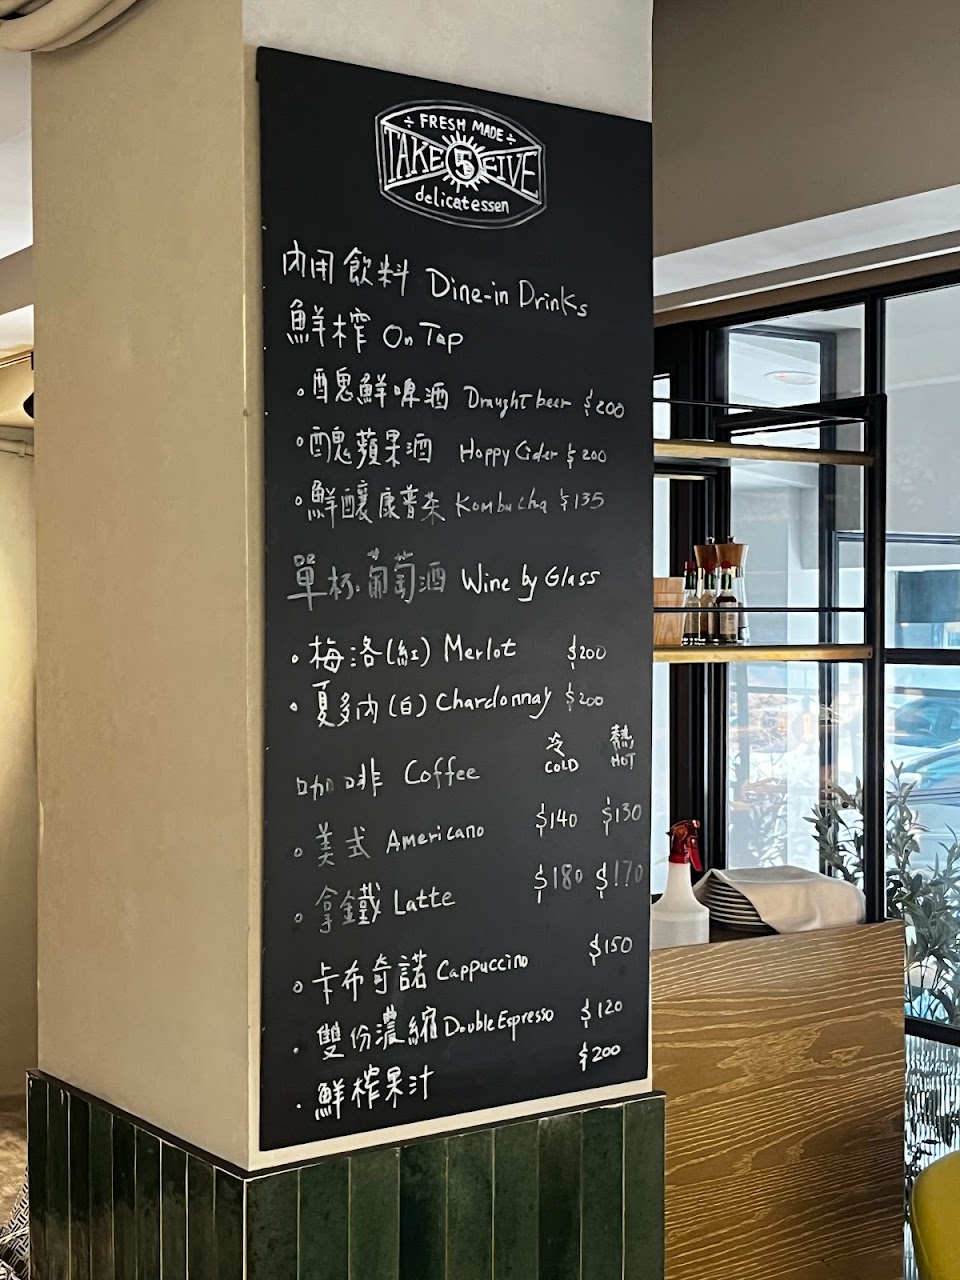 ÷ FRESH MADE ÷
TAKE 5 FIVE
delicatessen
內用飲料 Dine-in Drinks
鮮榨 On Tap
。醜鮮啤酒 Draught beer $200
。醜蘋果酒 Hoppy Cider $200
。鮮釀康普茶 Kombucha $135
單杯葡萄酒 Wine by Glass
。梅洛(紅) Merlot $200
。夏多內(白) Chardonnay $200
冷 熱
咖啡 Coffee COLD HOT
。美式 Americano $140 $130
。拿鐵 Latte $180 $170
。卡布奇諾 Cappuccino $150
· 雙份濃縮 Double Espresso $120
· 鮮榨果汁 $200